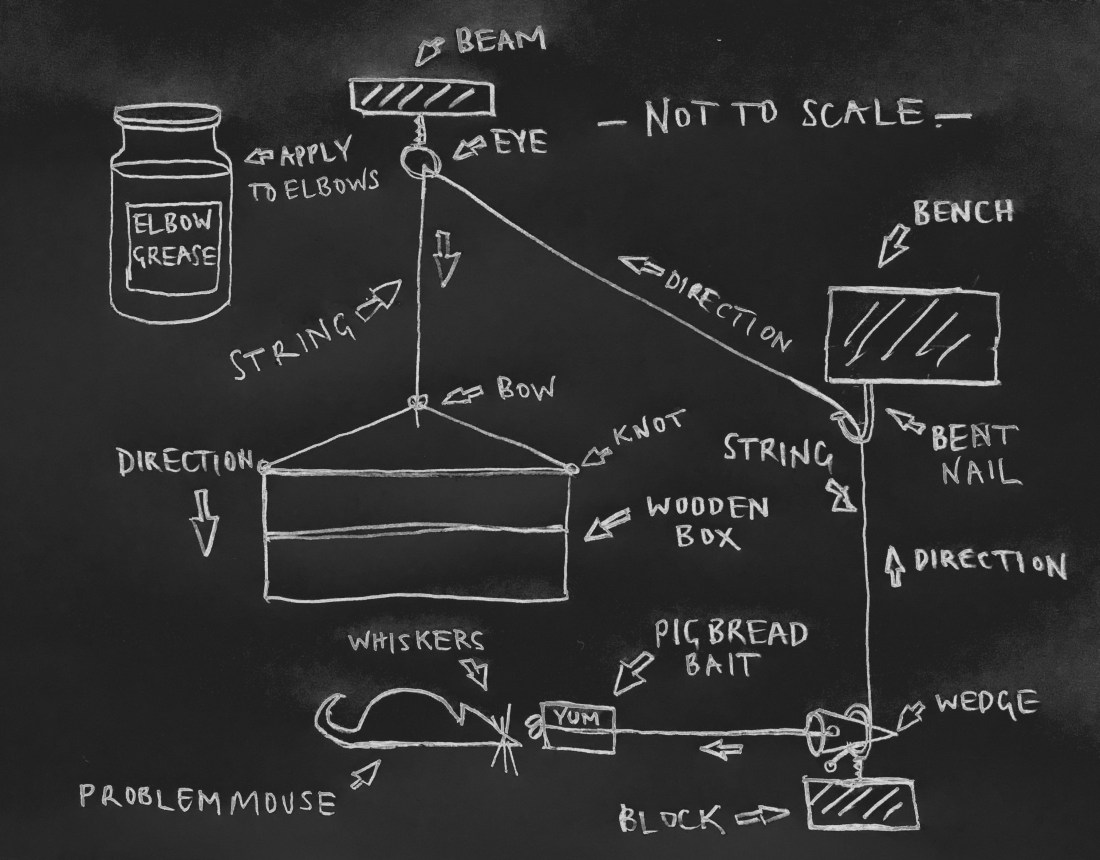 BEAM
— NOT TO SCALE. —
EYE
APPLY
TO ELBOWS
ELBOW
GREASE
BENCH
DIRECTION
STRING
BOW
KNOT
BENT
NAIL
STRING
DIRECTION
WOODEN
BOX
DIRECTION
WHISKERS
PIG BREAD
BAIT
YUM
WEDGE
PROBLEM MOUSE
BLOCK